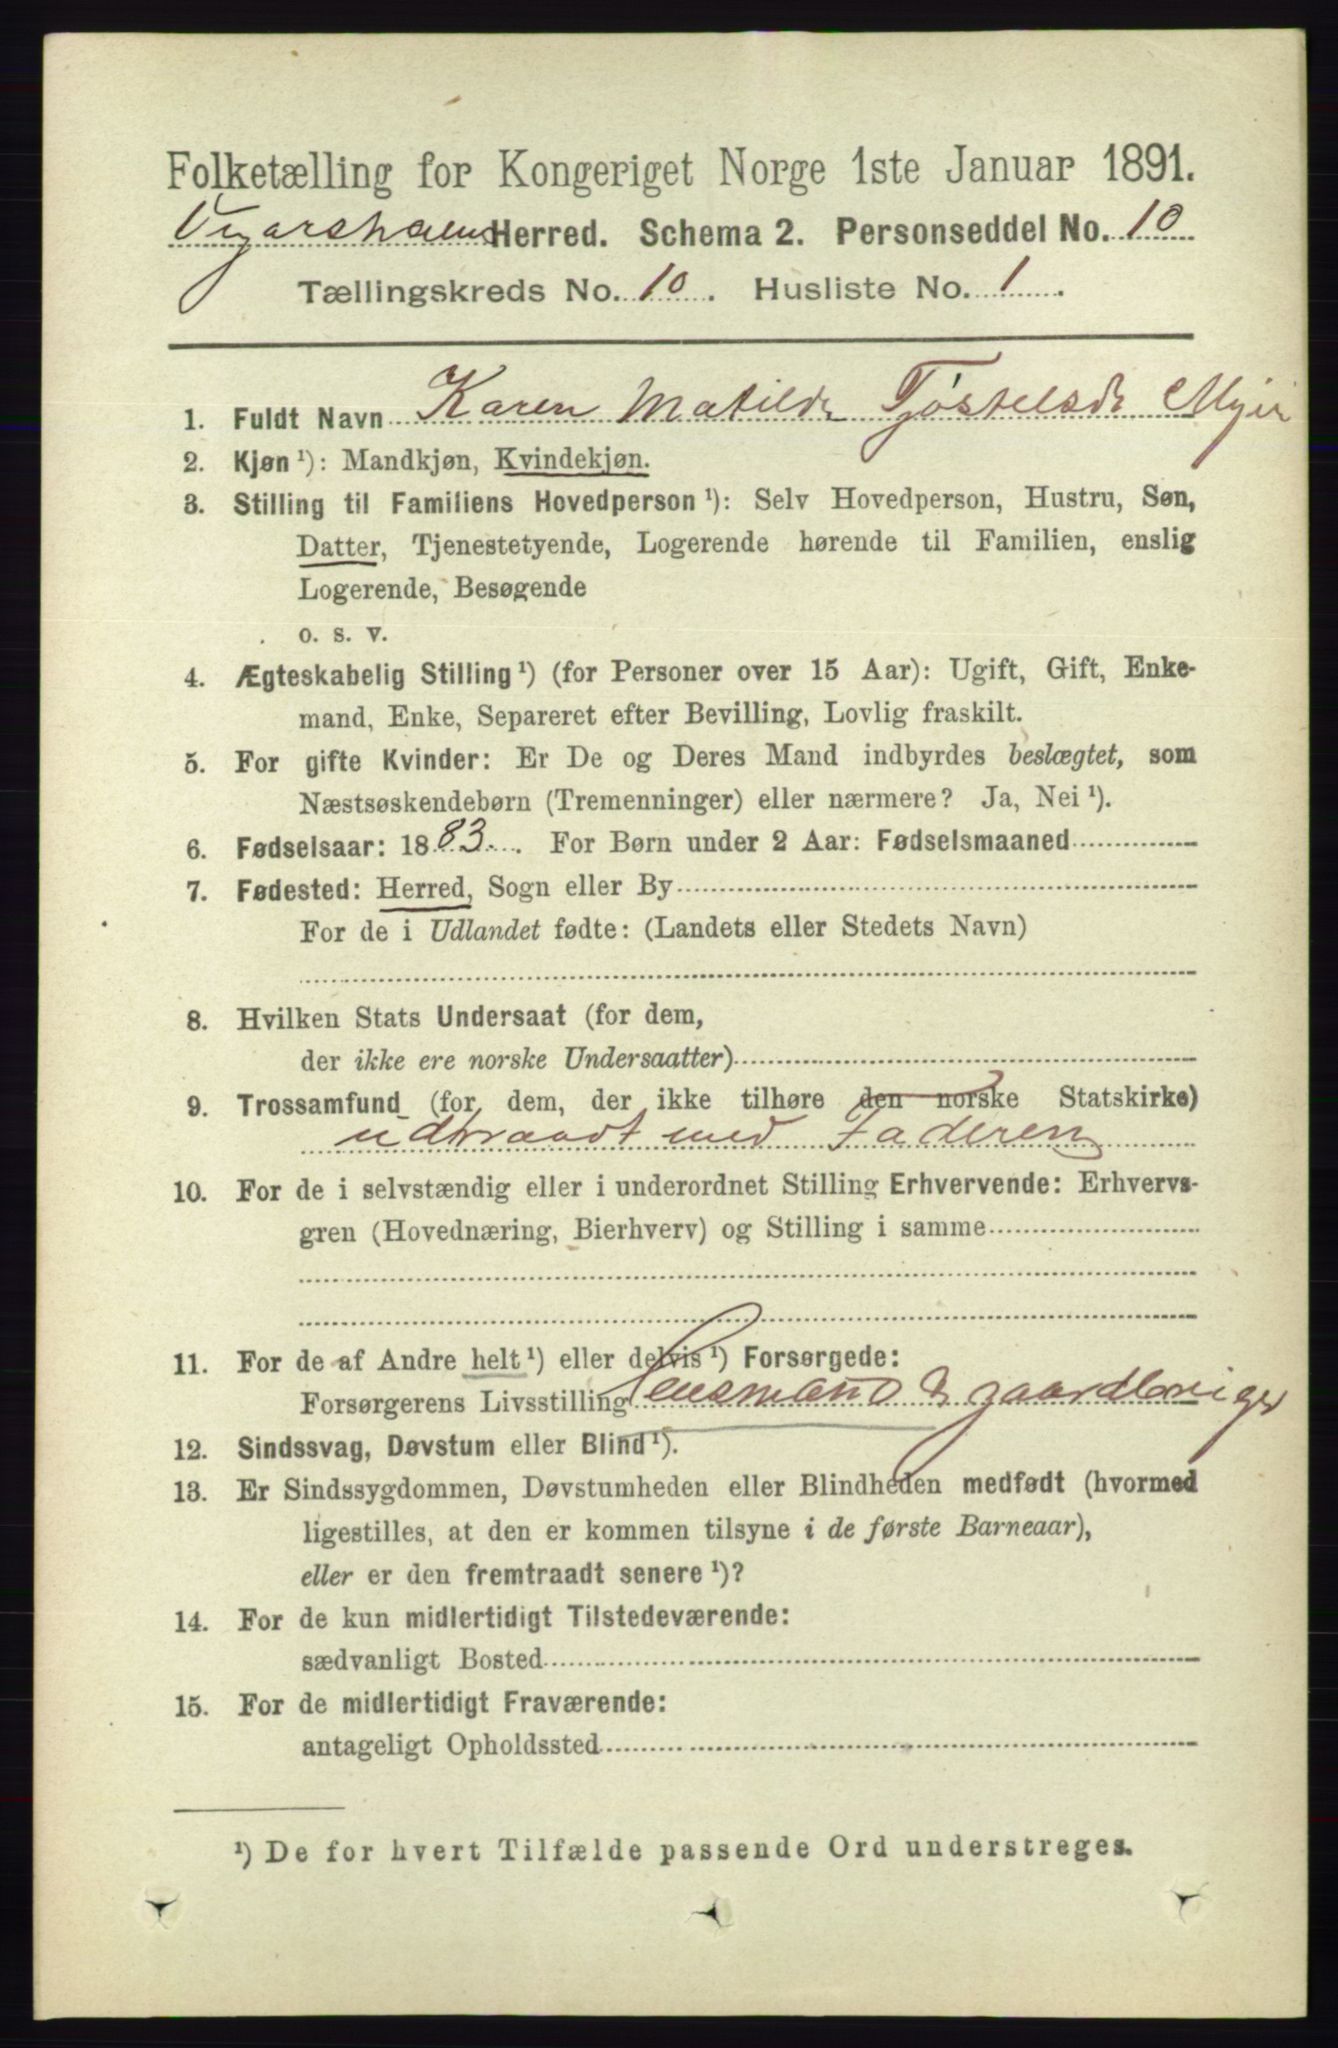 Folketælling for Kongeriget Norge 1ste Januar 1891.
Vegarsheiens Herred. Schema 2. Personseddel No. 10
Tællingskreds No. 10. Husliste No. 1.
1. Fuldt Navn Karen Matilde Tjøstelsd. Myre
2. Kjøn ¹): Mandkjøn, Kvindekjøn.
3. Stilling til Familiens Hovedperson ¹): Selv Hovedperson, Hustru, Søn,
Datter, Tjenestetyende, Logerende hørende til Familien, enslig
Logerende, Besøgende
o. s. v.
4. Ægteskabelig Stilling ¹) (for Personer over 15 Aar): Ugift, Gift, Enke-
mand, Enke, Separeret efter Bevilling, Lovlig fraskilt.
5. For gifte Kvinder: Er De og Deres Mand indbyrdes beslægtet, som
Næstsøskendebørn (Tremenninger) eller nærmere? Ja, Nei ¹).
6. Fødselsaar: 1883. For Børn under 2 Aar: Fødselsmaaned
7. Fødested: Herred, Sogn eller By
For de i Udlandet fødte: (Landets eller Stedets Navn)
8. Hvilken Stats Undersaat (for dem,
der ikke ere norske Undersaatter)
9. Trossamfund (for dem, der ikke tilhøre den norske Statskirke)
udtraadt med Faderen
10. For de i selvstændig eller i underordnet Stilling Erhvervende: Erhvervs-
gren (Hovednæring, Bierhverv) og Stilling i samme
11. For de af Andre helt ¹) eller delvis ¹) Forsørgede:
Forsørgerens Livsstilling Lensmand & gaardbruger
12. Sindssvag, Døvstum eller Blind ¹).
13. Er Sindssygdommen, Døvstumheden eller Blindheden medfødt (hvormed
ligestilles, at den er kommen tilsyne i de første Barneaar),
eller er den fremtraadt senere ¹)?
14. For de kun midlertidigt Tilstedeværende:
sædvanligt Bosted
15. For de midlertidigt Fraværende:
antageligt Opholdssted
¹) De for hvert Tilfælde passende Ord understreges.